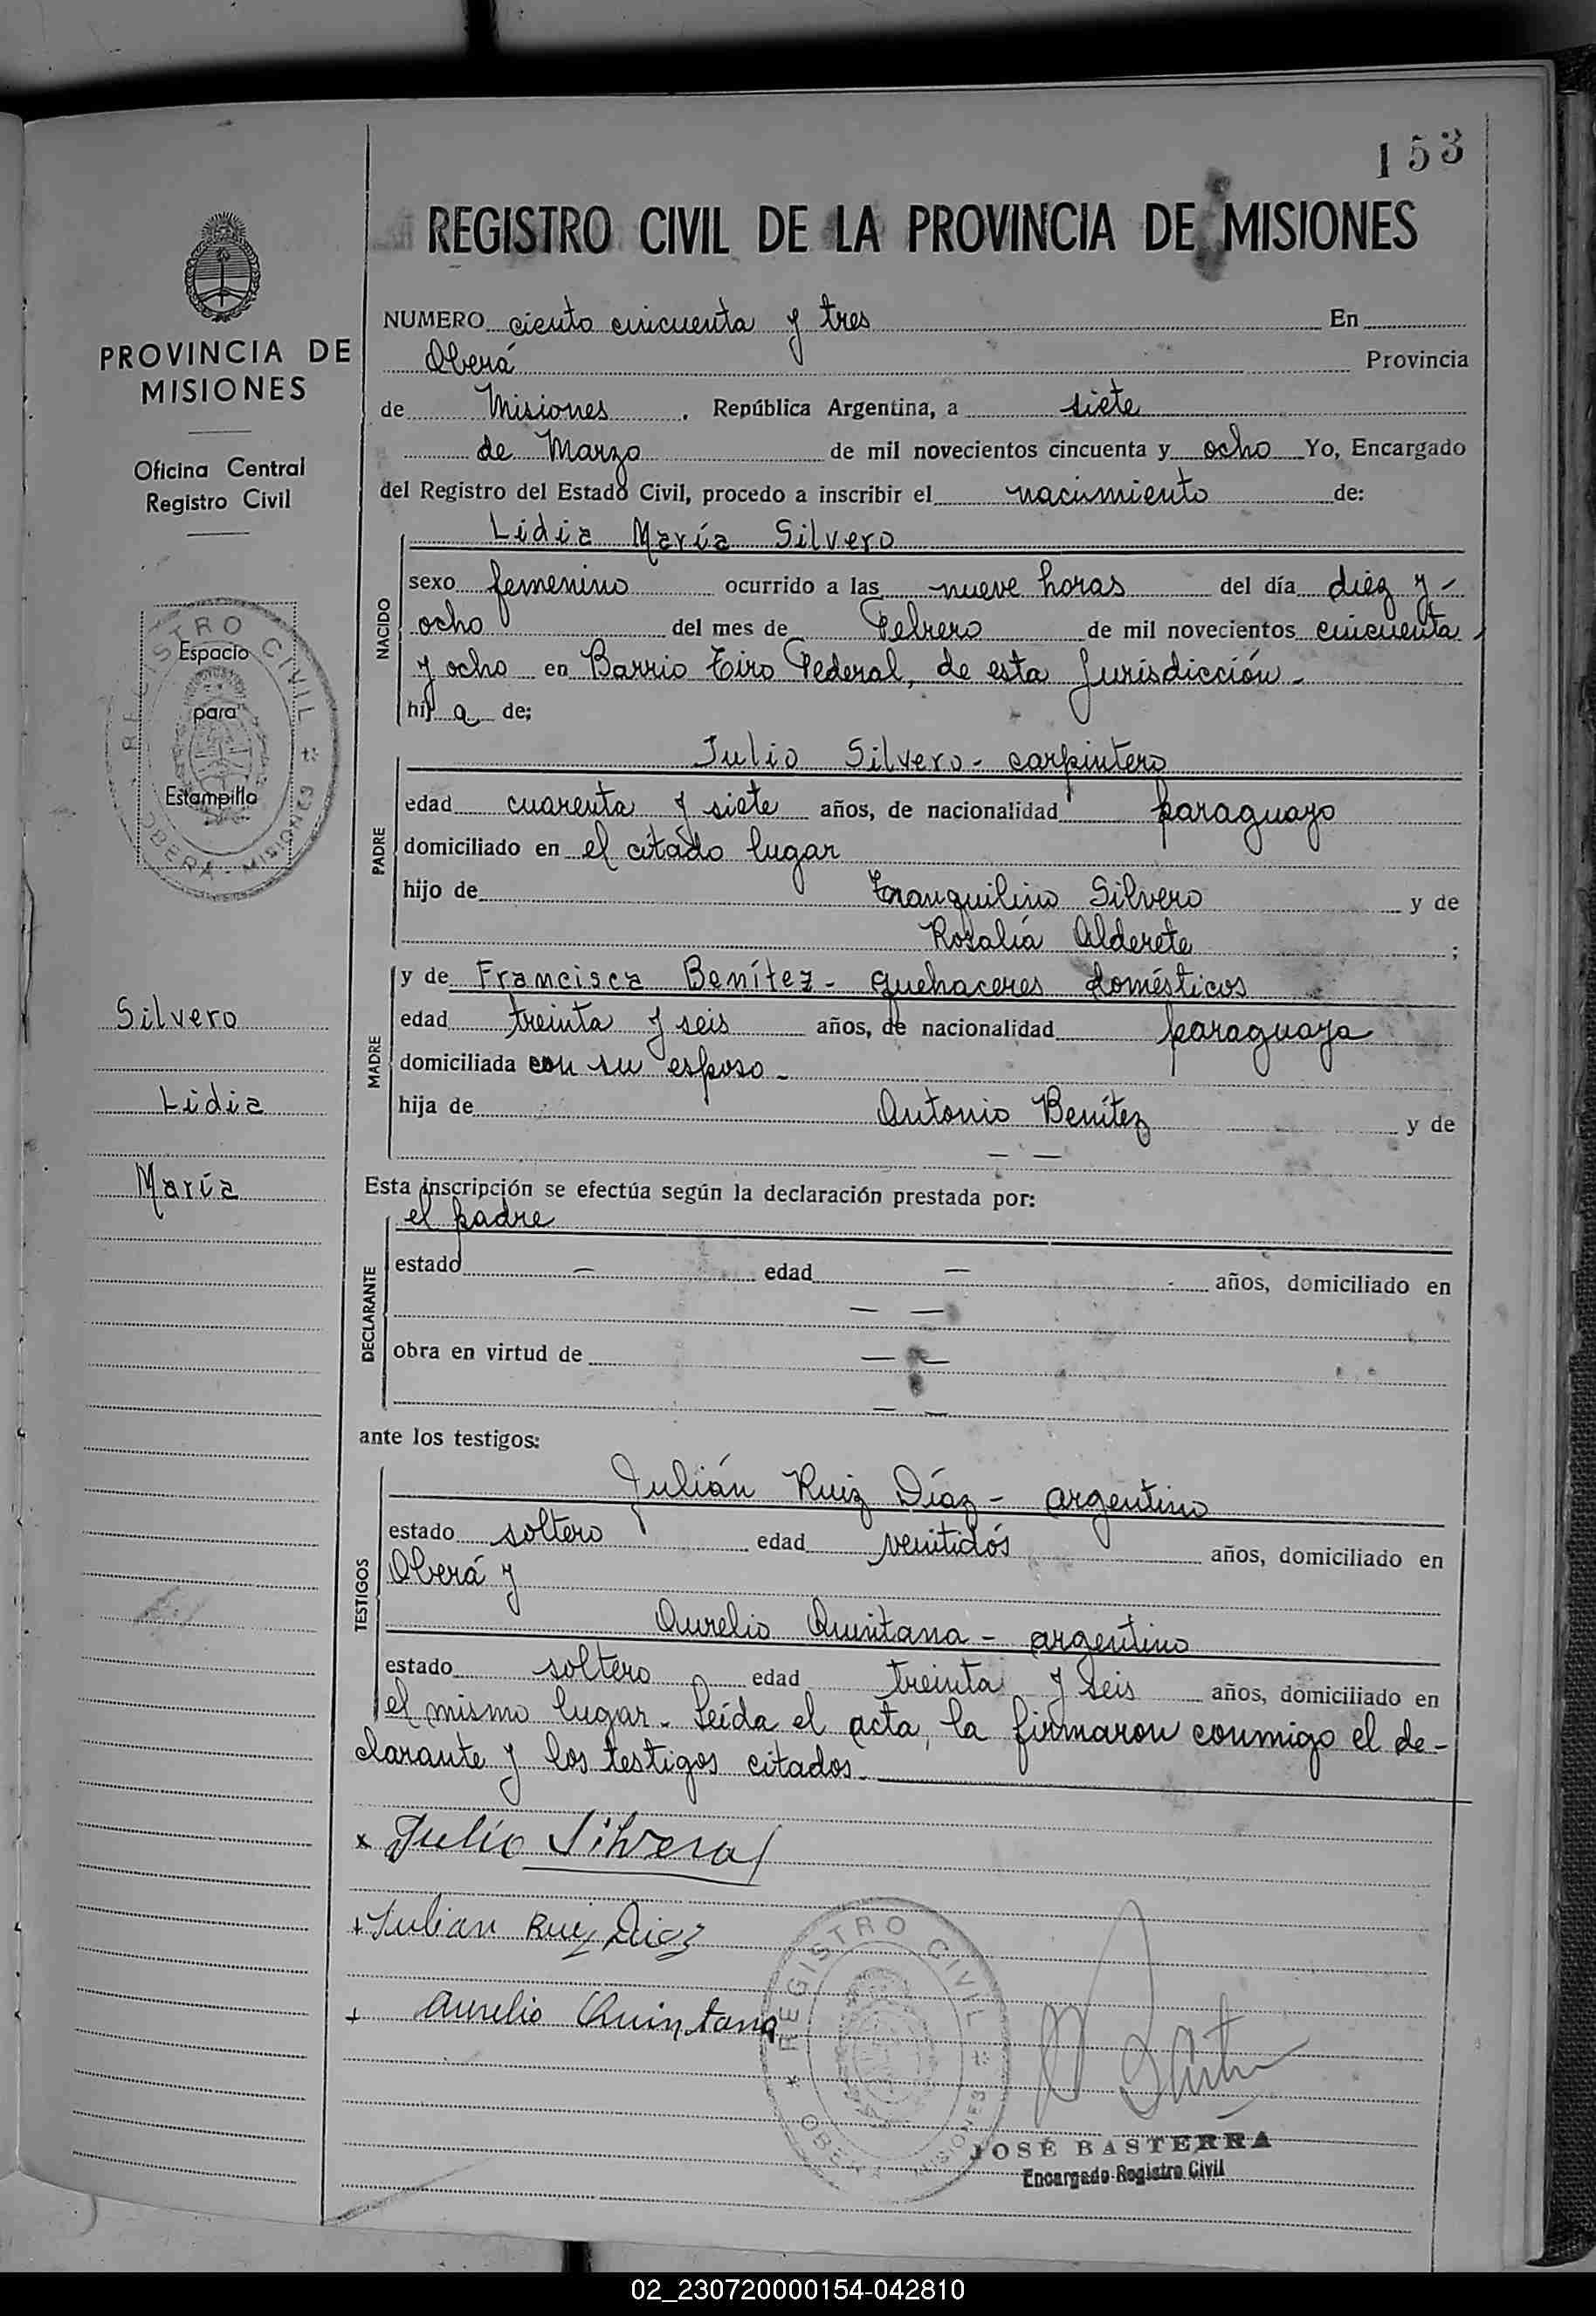 153
REGISTRO CIVIL DE LA PROVINCIA DE MISIONES
PROVINCIA DE
MISIONES
Oficina Central
Registro Civil
REGISTRO CIVIL
OBERÁ - MISIONES
Espacio
para
Estampilla
Silvero
Lidia
María
NUMERO ciento cincuenta y tres En
Oberá Provincia
de Misiones, República Argentina, a siete
de Marzo de mil novecientos cincuenta y ocho Yo, Encargado
del Registro del Estado Civil, procedo a inscribir el nacimiento de:
NACIDO
Lidia María Silvero
sexo femenino ocurrido a las nueve horas del día diez y -
ocho del mes de Febrero de mil novecientos cincuenta
y ocho en Barrio Tiro Federal, de esta Jurisdicción.-
hij a de;
PADRE
Julio Silvero - carpintero
edad cuarenta y siete años, de nacionalidad paraguayo
domiciliado en el citado lugar
hijo de Tranquilino Silvero y de
Rosalía Alderete ;
MADRE
y de Francisca Benítez - quehaceres domésticos
edad treinta y seis años, de nacionalidad paraguaya
domiciliada con su esposo -
hija de Antonio Benítez y de
— —
Esta inscripción se efectúa según la declaración prestada por:
DECLARANTE
el padre
estado — edad — años, domiciliado en
— —
obra en virtud de — —
— —
ante los testigos:
TESTIGOS
Julián Ruiz Díaz - argentino
estado soltero edad veintidós años, domiciliado en
Oberá y
Aurelio Quintana - argentino
estado soltero edad treinta y seis años, domiciliado en
el mismo lugar. Leída el acta, la firmaron conmigo el de-
clarante y los testigos citados.
x Julio Silvero
+ Julian Ruiz Diaz
+ Aurelio Quintana
REGISTRO CIVIL
OBERÁ MISIONES
JOSÉ BASTERRA
Encargado Registro Civil
02_230720000154-042810